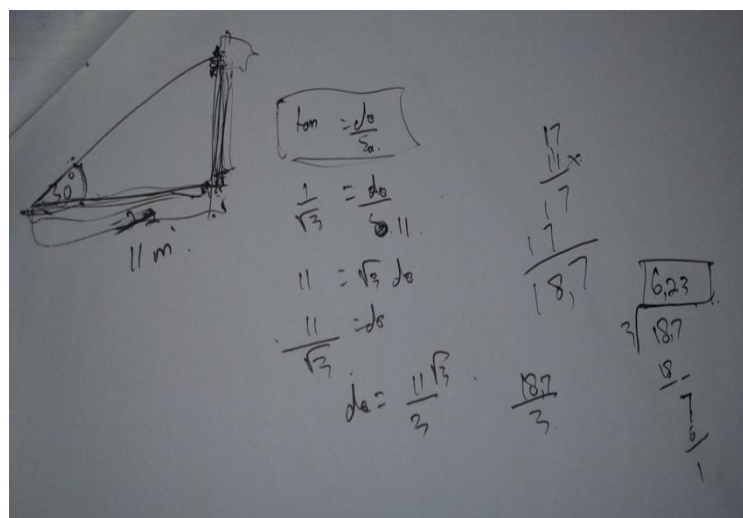 30°
11 m
tan = de/sa.
1/√3 = de/11
11 = √3 de
11/√3 = de
de = 11√3/3
18,7/3
17
11 x
17
17
18,7
6,23
3 18,7
18 -
7
6
1